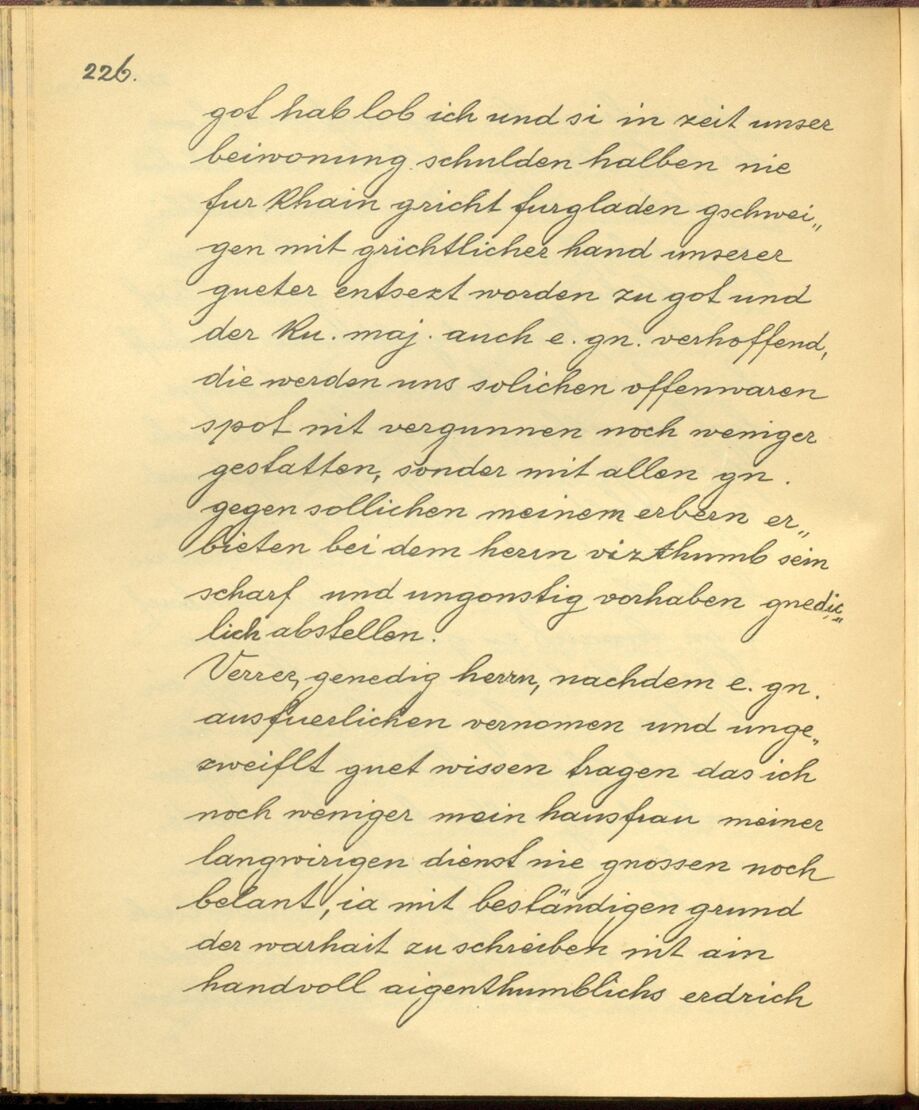 226.
got hab lob ich und si in zeit unser
beiwonung schulden halben nie
fur khain gricht furgladen gschwei„
gen mit grichtlicher hand unserer
gueter entsezt worden zu got und
der ku. maj. auch e. gn. verhoffend,
die werden uns solichen offenwaren
spot nit vergunnen noch weniger
gestatten, sonder mit allen gn.
gegen sollichen meinem erbern er„
bieten bei dem herrn vizthumb sein
scharf und ungonstig vorhaben gnedig„
lich abstellen.
Verrer, genedig herrn, nachdem e. gn.
ausfuerlichen vernomen und unge„
zweiflt guet wissen tragen das ich
noch weniger mein hausfrau meiner
langwirigen dienst nie gnossen noch
belant, ia mit beständigen grund
der warhait zu schreiben nit ain
handvoll aigenthumblichs erdrich